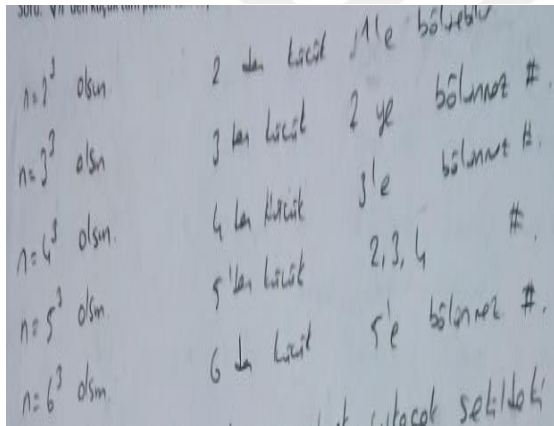 Soru:
n=2³ olsun. 2 den küçük 1'e bölünebilir
n=3³ olsn 3 den küçük 2 ye bölünmez #.
n=4³ olsun. 4 den küçük 3'e bölünmez #.
n=5³ olsm. 5'den küçük 2,3,4 #.
n=6³ olsm. 6 dan küçük 5'e bölünmez #.
şekildeki